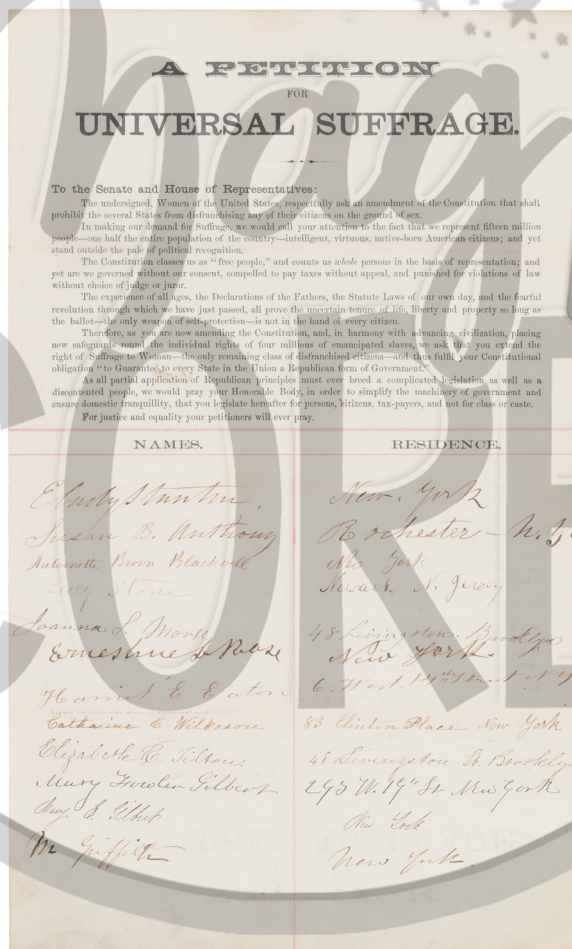 A PETITION
FOR
UNIVERSAL SUFFRAGE.
To the Senate and House of Representatives:
The undersigned, Women of the United States, respectfully ask an amendment of the Constitution that shall
prohibit the several States from disfranchising any of their citizens on the ground of sex.
In making our demand for Suffrage, we would call your attention to the fact that we represent fifteen million
people—one half the entire population of the country—intelligent, virtuous, native-born American citizens; and yet
stand outside the pale of political recognition.
The Constitution classes us as "free people," and counts us whole persons in the basis of representation; and
yet are we governed without our consent, compelled to pay taxes without appeal, and punished for violations of law
without choice of judge or juror.
The experience of all ages, the Declarations of the Fathers, the Statute Laws of our own day, and the fearful
revolution through which we have just passed, all prove the uncertain tenure of life, liberty and property so long as
the ballot—the only weapon of self-protection—is not in the hand of every citizen.
Therefore, as you are now amending the Constitution, and, in harmony with advancing civilization, placing
new safeguards round the individual rights of four millions of emancipated slaves, we ask that you extend the
right of Suffrage to Woman—the only remaining class of disfranchised citizens—and thus fulfil your Constitutional
obligation "to Guarantee to every State in the Union a Republican form of Government."
As all partial application of Republican principles must ever breed a complicated legislation as well as a
discontented people, we would pray your Honorable Body, in order to simplify the machinery of government and
ensure domestic tranquillity, that you legislate hereafter for persons, citizens, tax-payers, and not for class or caste.
For justice and equality your petitioners will ever pray.
NAMES. RESIDENCE.
E Cady Stanton, New York
Susan B. Anthony Rochester - N.Y.
Antoinette Brown Blackwell New York
Lucy Stone Newark N. Jersey
Joanna S. Morse 48 Livingston. Brooklyn
Ernestine L Rose New York
Harriet E Eaton 6. West. Street N.Y
Catharine C Wilkeson 83 Clinton Place New York
Elizabeth R. Tilton. 48 Livingston St. Brooklyn
Mary Fowler Gilbert 293 W. 19" St New York
Mary E. Gilbert New York
M Griffith New York.